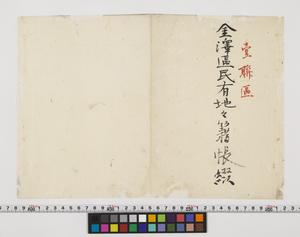 壹聯區
金澤區民有地々籍帳綴